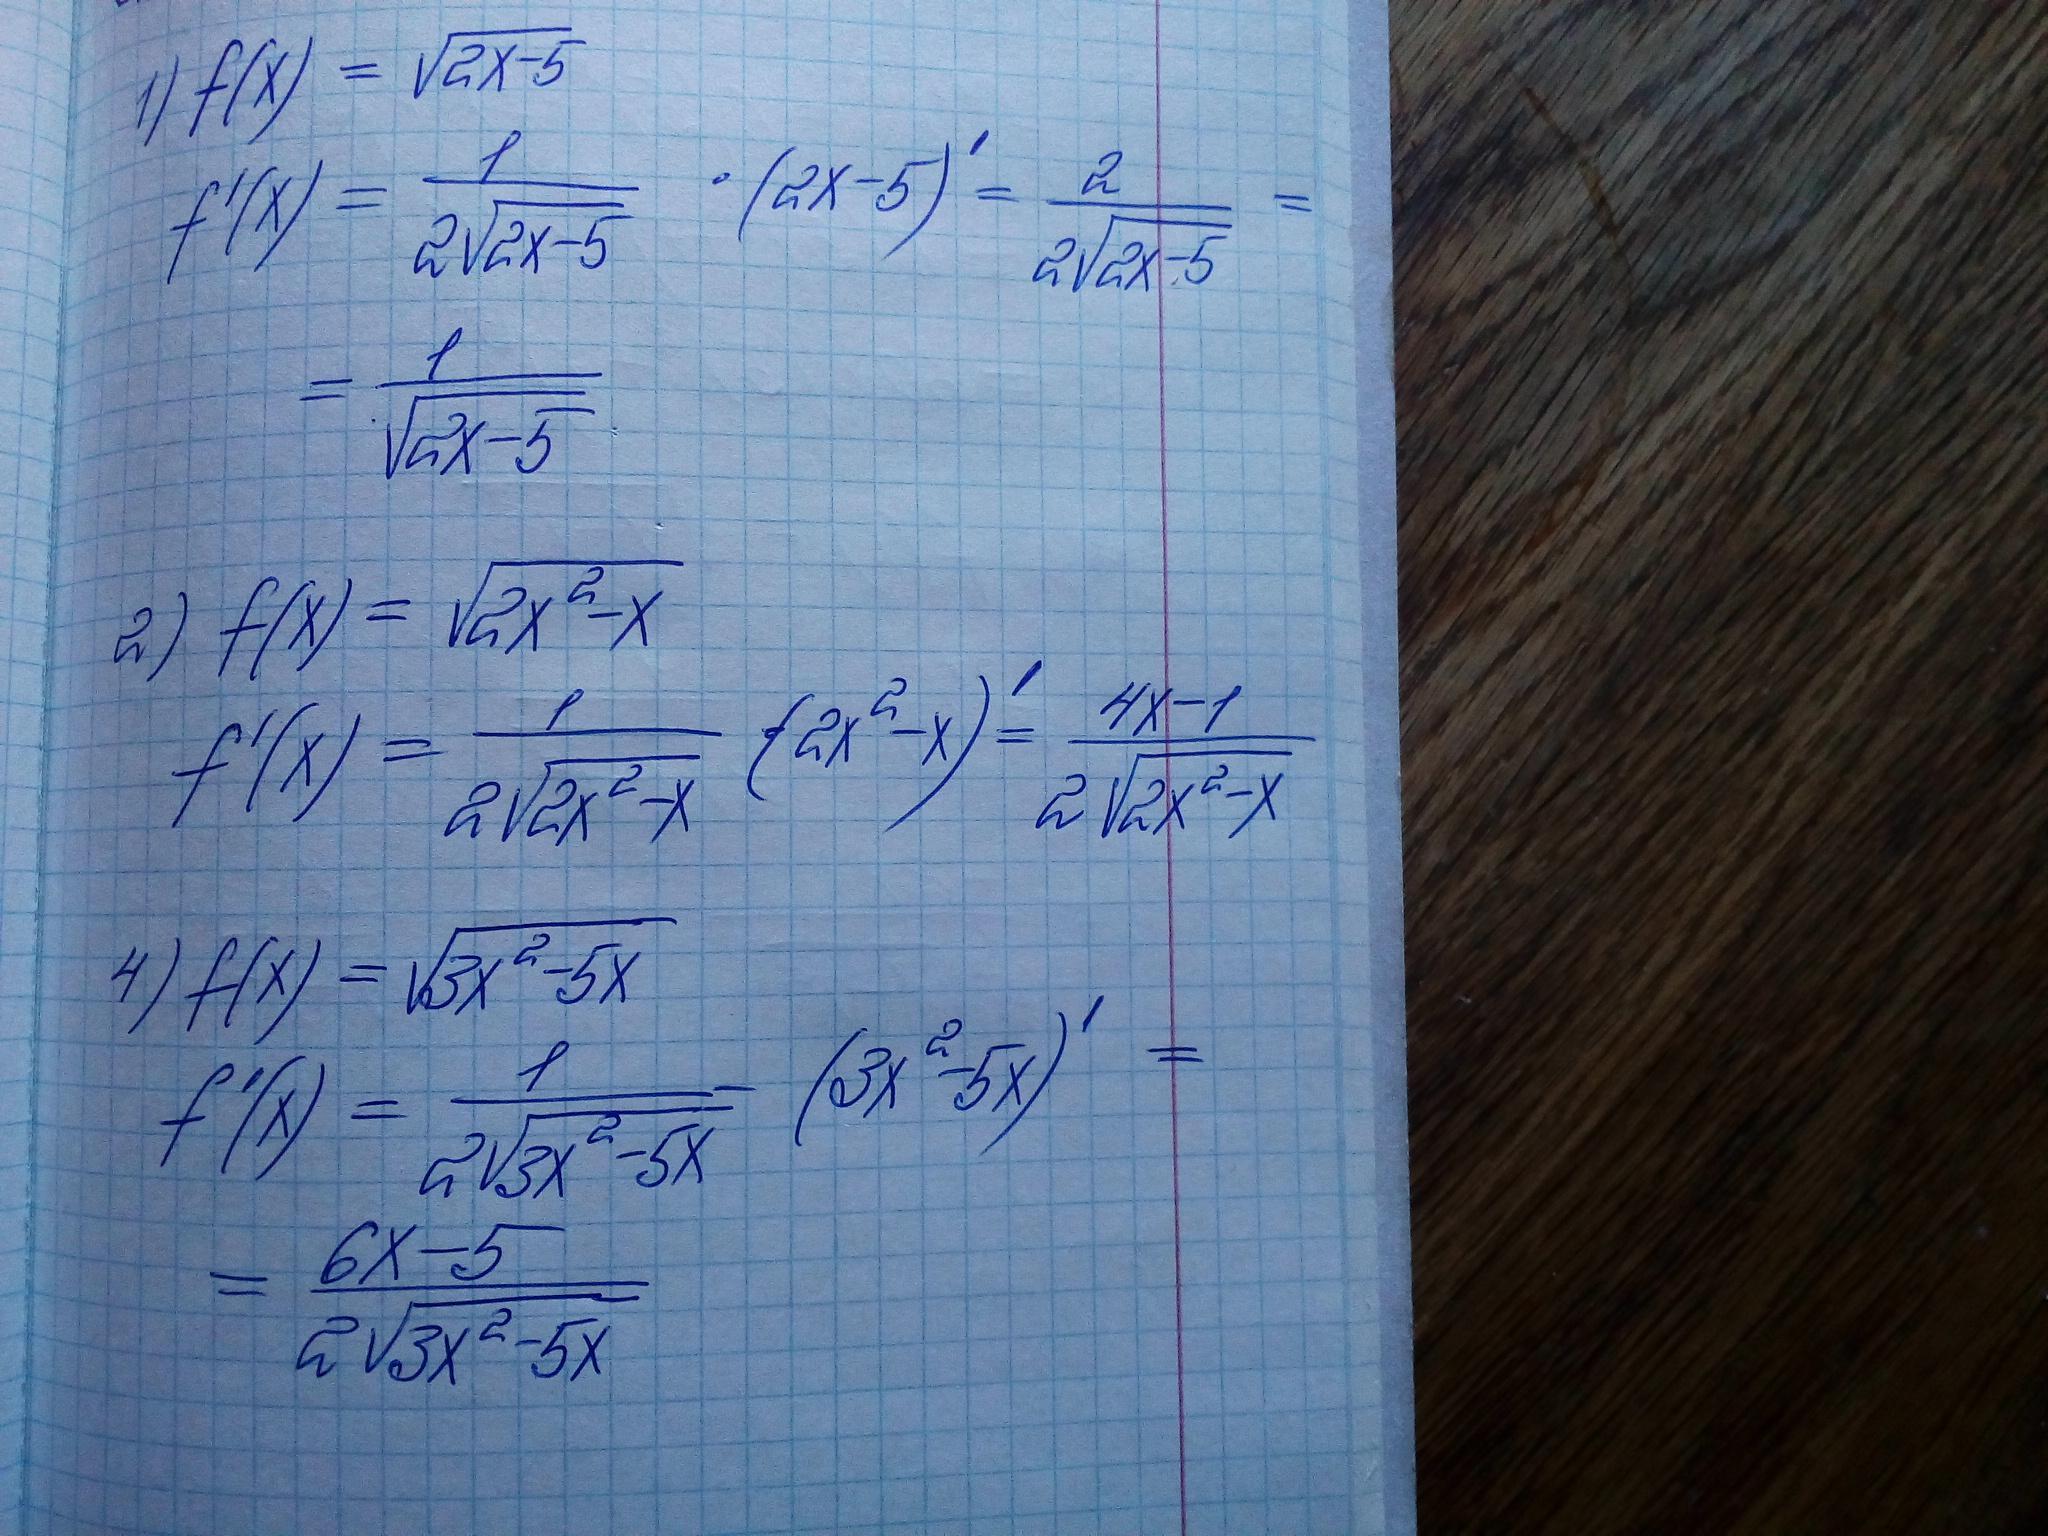 1) f(x) = √(2x-5)
f'(x) = 1/(2√(2x-5)) · (2x-5)' = 2/(2√(2x-5)) =
= 1/√(2x-5)
2) f(x) = √(2x²-x)
f'(x) = 1/(2√(2x²-x)) (2x²-x)' = (4x-1)/(2√(2x²-x))
4) f(x) = √(3x²-5x)
f'(x) = 1/(2√(3x²-5x)) (3x²-5x)' =
= (6x-5)/(2√(3x²-5x))